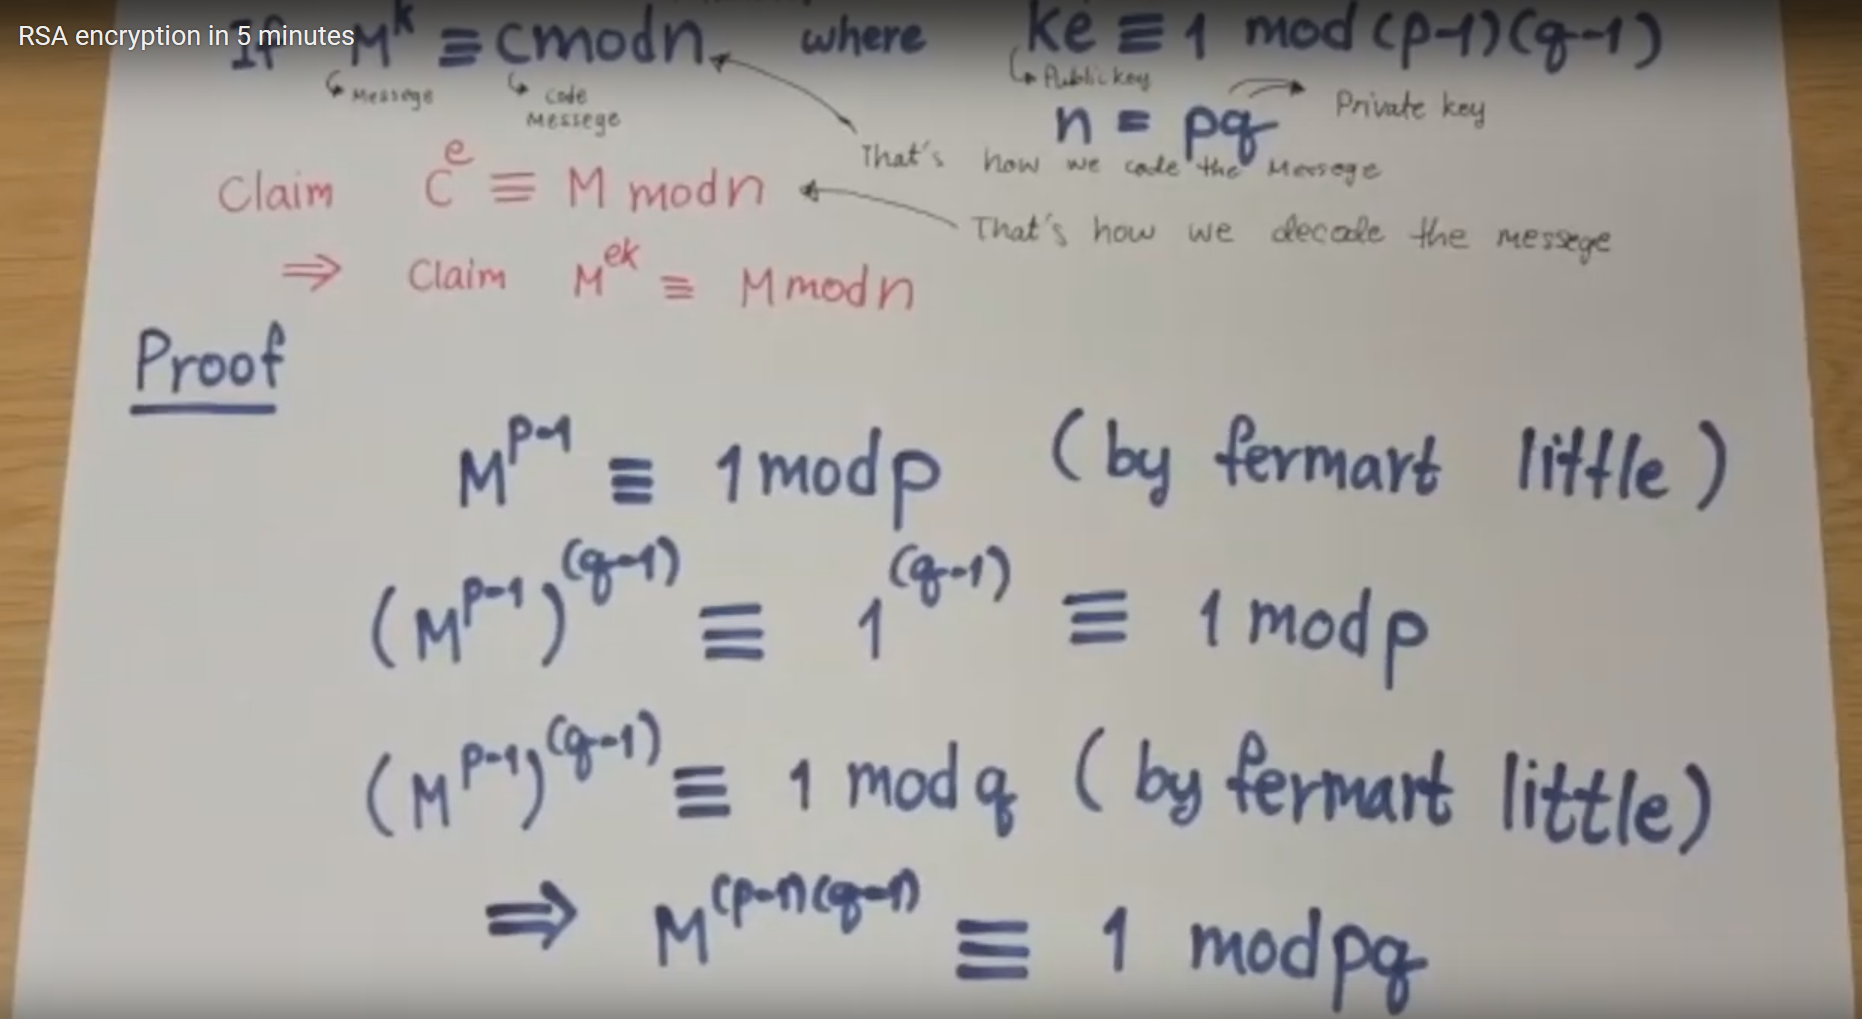 RSA encryption in 5 minutes
If M^k ≡ c mod n where ke ≡ 1 mod (p-1)(q-1)
Messege Code Messege Public key
n = pq Private key
That's how we code the Messege
Claim C^e ≡ M mod n
That's how we decode the messege
⇒ Claim M^ek ≡ M mod n
Proof
M^p-1 ≡ 1 mod p (by fermart little)
(M^p-1)^(q-1) ≡ 1^(q-1) ≡ 1 mod p
(M^p-1)^(q-1) ≡ 1 mod q (by fermart little)
⇒ M^(p-1)(q-1) ≡ 1 mod pq